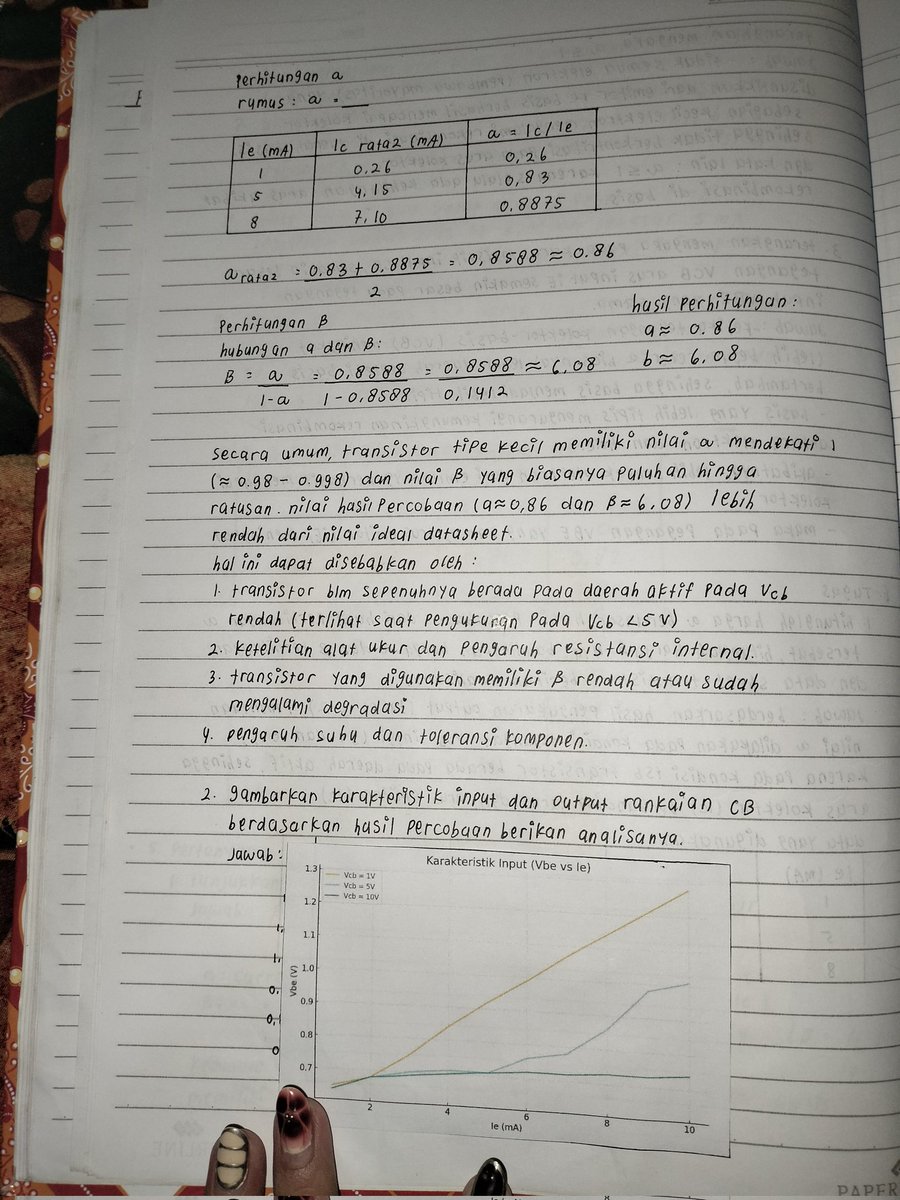 Perhitungan a
rumus : a = __
Ie (mA) Ic rata2 (mA) a = Ic/Ie
1 0,26 0,26
5 4,15 0,83
8 7,10 0,8875
a rata2 = 0.83 + 0.8875 / 2 = 0,8588 ≈ 0.86
Perhitungan β
hubungan a dan β :
β = a / 1-a = 0,8588 / 1-0,8588 = 0,8588 / 0,1412 ≈ 6,08
hasil Perhitungan :
a ≈ 0.86
b ≈ 6,08
secara umum, transistor tipe kecil memiliki nilai a mendekati 1
(≈ 0.98 - 0.998) dan nilai β yang biasanya Puluhan hingga
ratusan. nilai hasil Percobaan (a ≈ 0,86 dan β ≈ 6,08) lebih
rendah dari nilai ideal datasheet.
hal ini dapat disebabkan oleh :
1. transistor blm sepenuhnya berada pada daerah aktif pada Vcb
rendah (terlihat saat pengukuran Pada Vcb < 5 V)
2. ketelitian alat ukur dan Pengaruh resistansi internal.
3. transistor yang digunakan memiliki β rendah atau sudah
mengalami degradasi
4. pengaruh suhu dan toleransi komponen.
2. gambarkan karakteristik input dan output rankaian CB
berdasarkan hasil percobaan berikan analisanya.
Jawab :
Karakteristik Input (Vbe vs Ie)
Vcb = 1V
Vcb = 5V
Vcb = 10V
1.3
1.2
1.1
1.0
0.9
0.8
0.7
Vbe (V)
2 4 6 8 10
Ie (mA)
PAPER